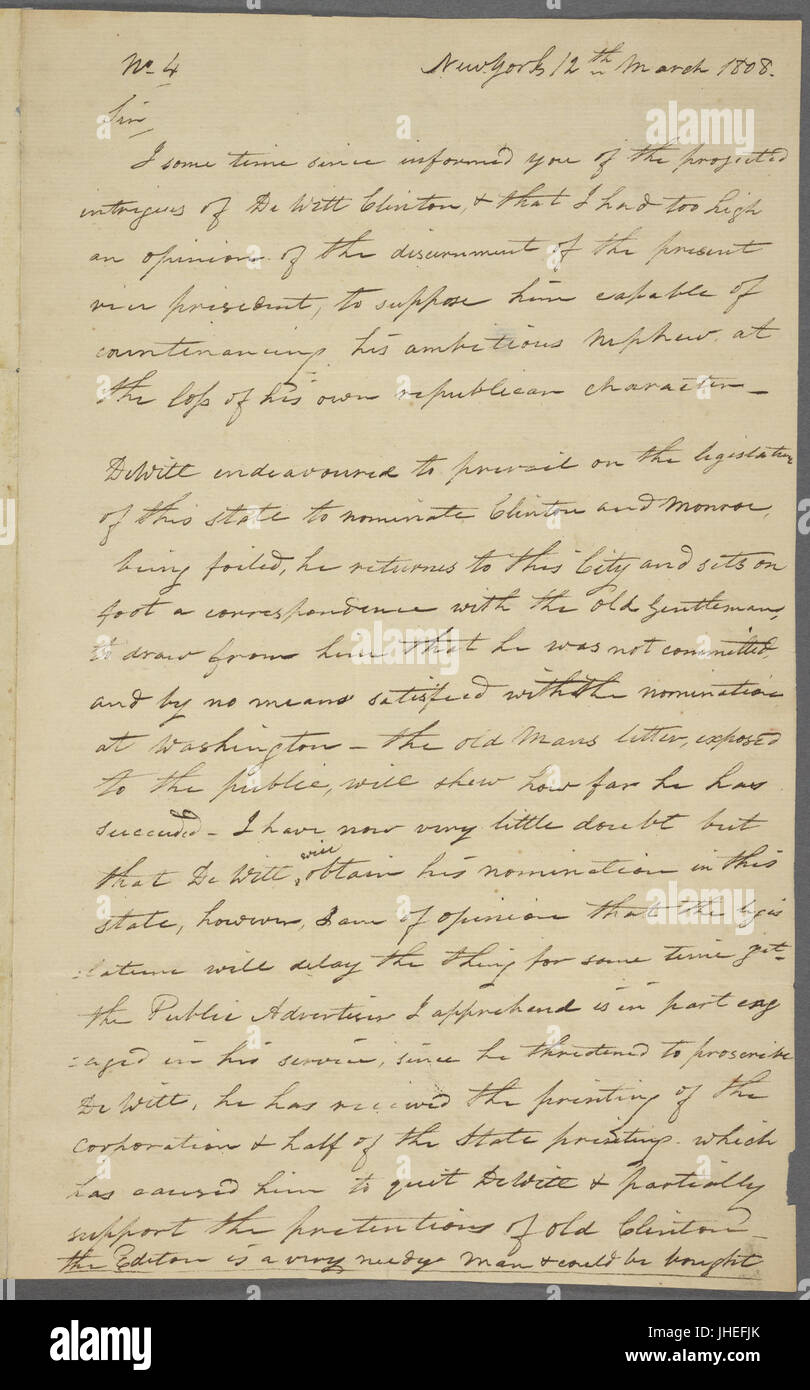 No. 4 New York 12th March 1808.
Sir,
I some time since informed you of the projected
intrigues of De Witt Clinton, & that I had too high
an opinion of the discernment of the present
vice president, to suppose him capable of
countenancing his ambitious nephew at
the loss of his own republican character—
DeWitt endeavoured to prevail on the legislature
of this state to nominate Clinton and Monroe,
being foiled, he returnes to this City and sets on
foot a correspondence with the old Gentleman,
to draw from him that he was not committed,
and by no means satisfied with the nomination
at Washington – the old Mans letter, exposed
to the public, will shew how far he has
succeeded – I have now very little doubt but
that De Witt will obtain his nomination in this
state, however, I am of opinion that the legis
-lature will delay the thing for some time yet-
the Public Advertiser I apprehend is in part eng
-aged in his service, since he thretened to proscribe
De Witt, he has received the printing of the
corporation & half of the State printing which
has caused him to quit DeWitt & partially
support the pretentions of old Clinton—
the Editor is a very needy man & could be bought
alamy stock photo
alamy
Image ID: JHEFJK
www.alamy.com